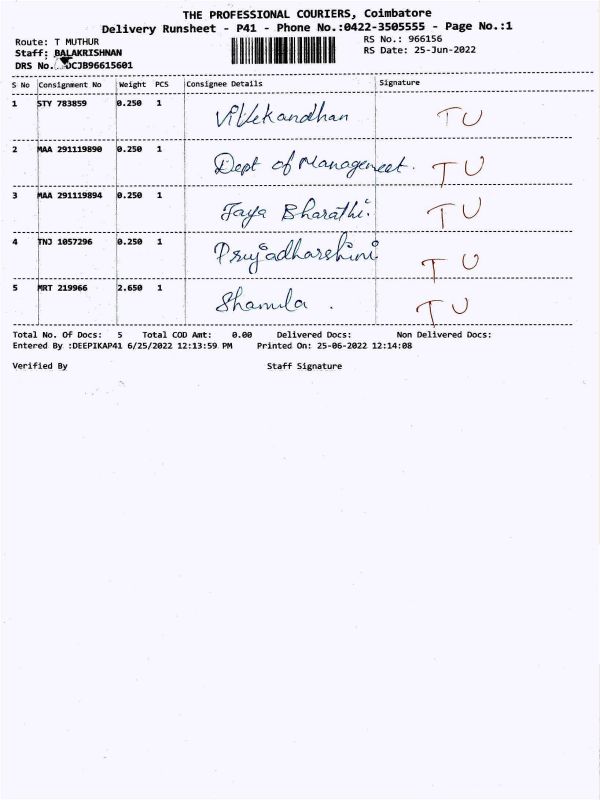 THE PROFESSIONAL COURIERS, Coimbatore
Delivery Runsheet - P41 - Phone No.:0422-3505555 - Page No.:1
Route: T MUTHUR
RS No.: 966156
Staff: BALAKRISHNAN
RS Date: 25-Jun-2022
DRS No. DCJB96615601
S No Consignment No Weight PCS Consignee Details Signature
1 STY 783859 0.250 1 Vivekandhan TU
2 MAA 291119890 0.250 1 Dept of Management. TU
3 MAA 291119894 0.250 1 Jaya Bharathi. TU
4 TNJ 1057296 0.250 1 Priyadharshini TU
5 MRT 219966 2.650 1 Shamila . TU
Total No. Of Docs: 5 Total COD Amt: 0.00 Delivered Docs: Non Delivered Docs:
Entered By :DEEPIKAP41 6/25/2022 12:13:59 PM Printed On: 25-06-2022 12:14:08
Verified By Staff Signature